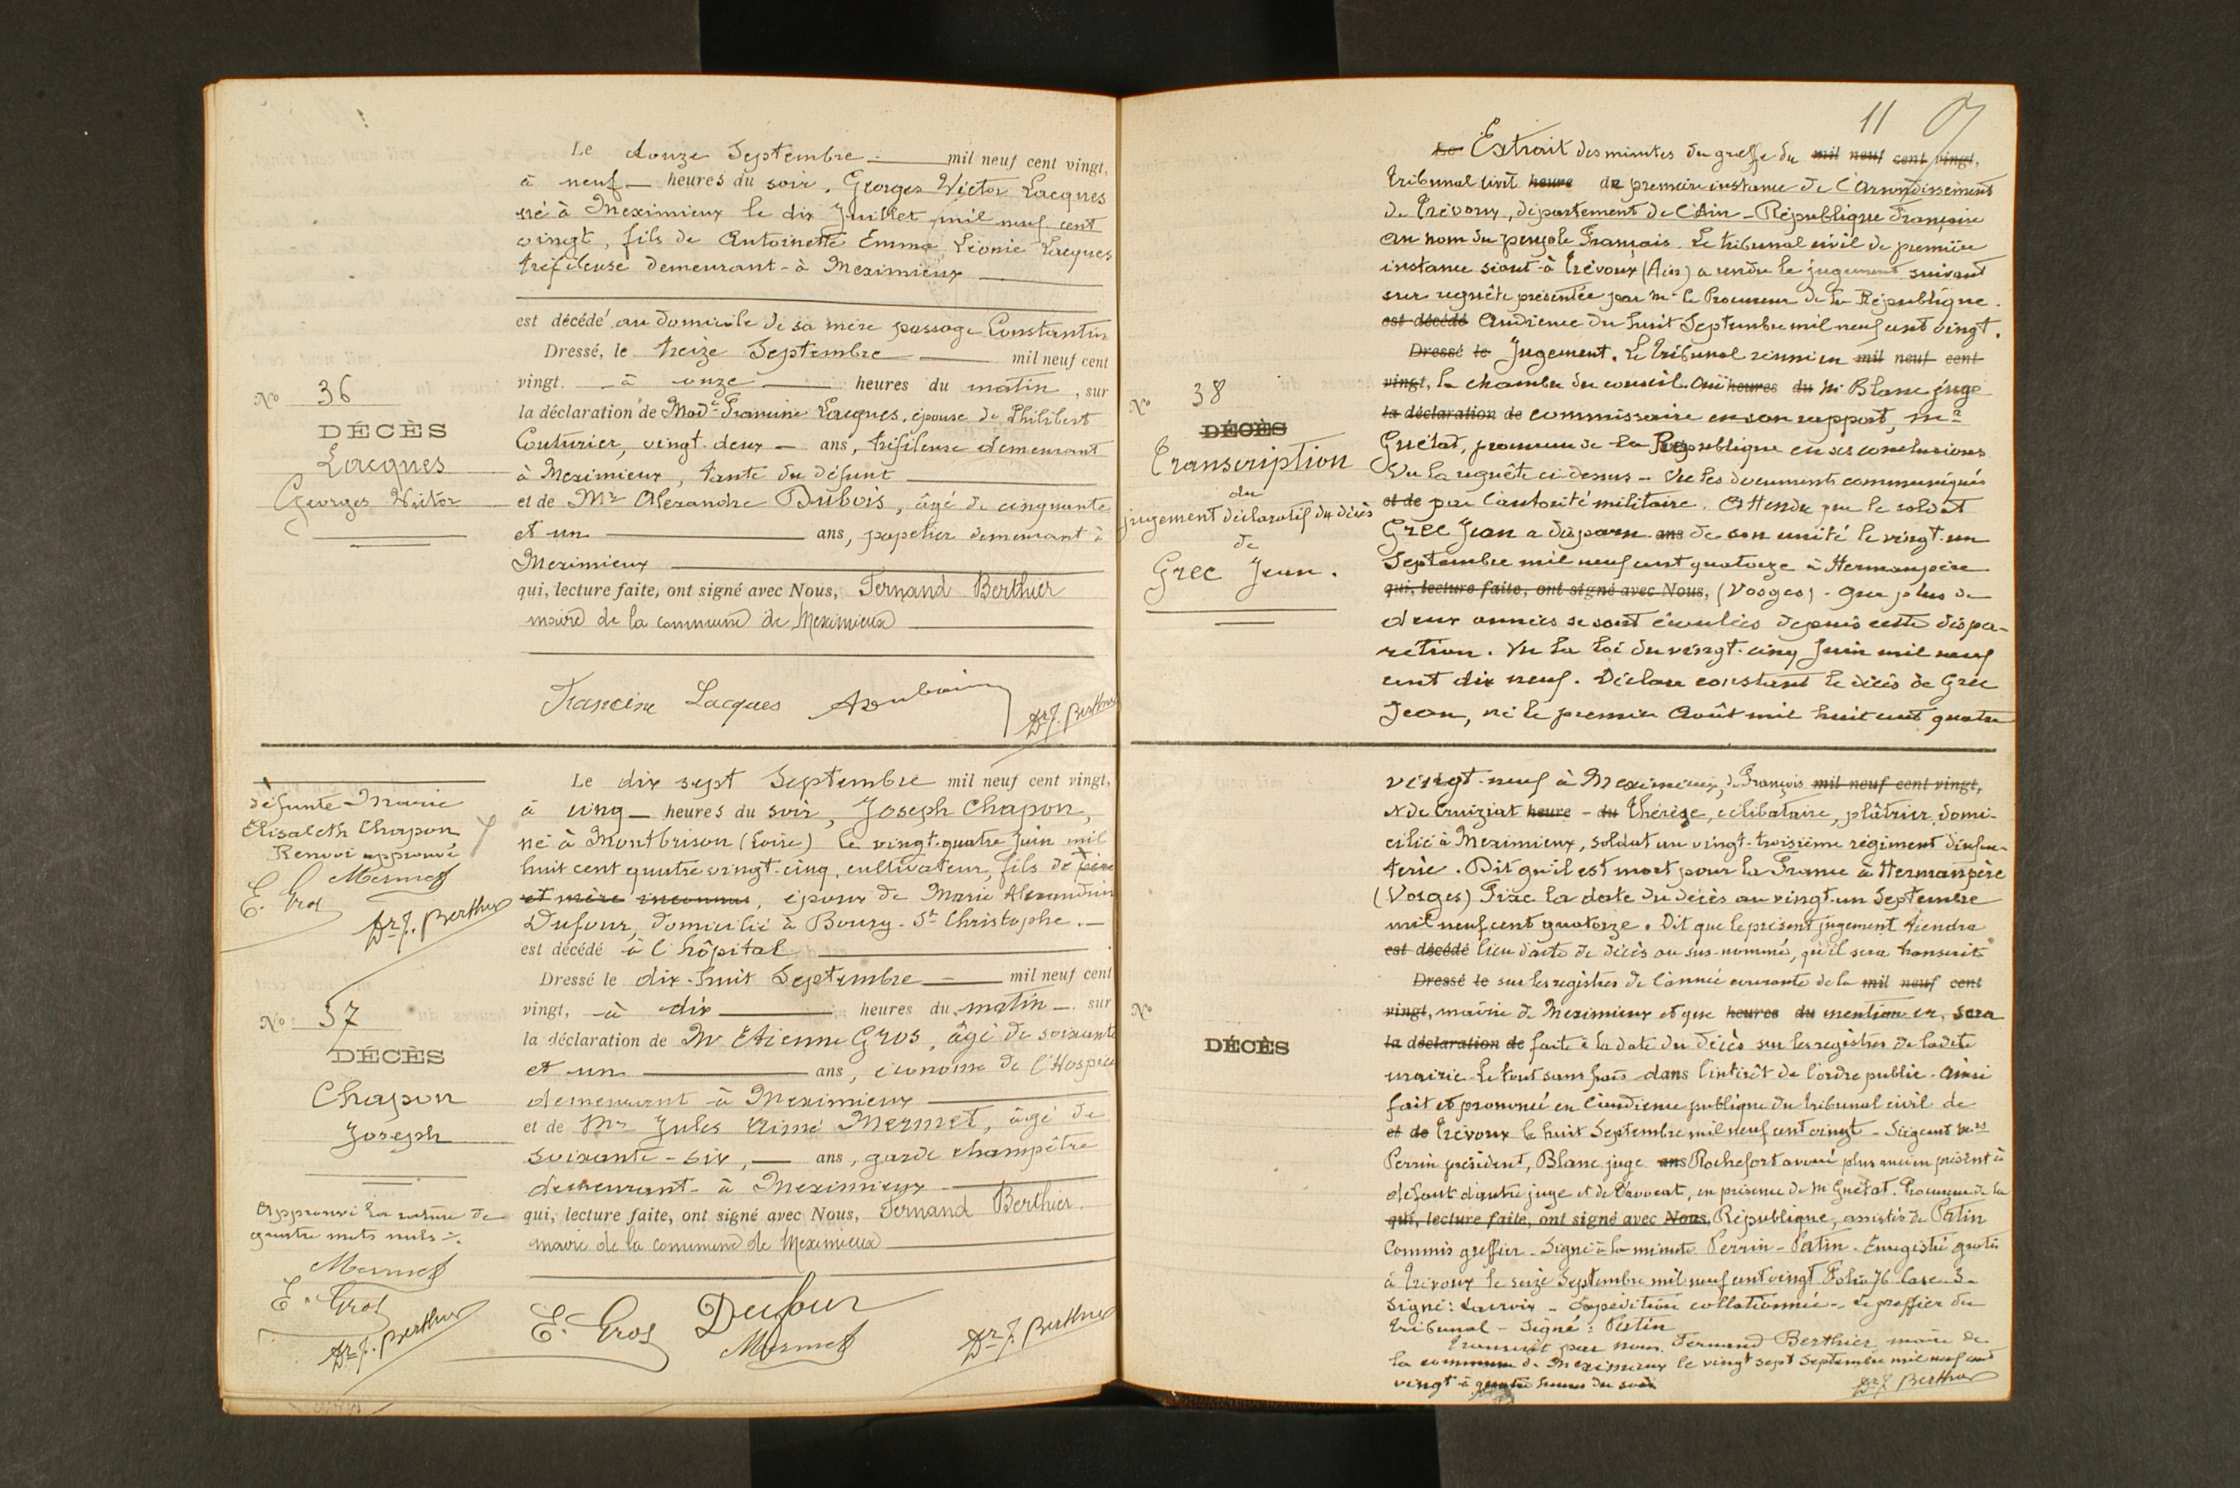 Le douze Septembre - mil neuf cent vingt,
à neuf - heures du soir, Georges Victor Lacques
né à Meximieux le dix Juillet mil neuf cent
vingt, fils de Antoinette Emma Léonie Lacques
tréfileuse demeurant à Meximieux
est décédé au domicile de sa mère passage Constantin
Dressé, le treize Septembre mil neuf cent
vingt. à onze heures du matin, sur
la déclaration de Made Francine Lacques, épouse de Philibert
Couturier, vingt-deux - ans, tréfileuse demeurant
à Meximieux, tante du défunt
et de Mr Alexandre Dubois, âgé de cinquante
et un ans, papetier demeurant à
Meximieux
qui, lecture faite, ont signé avec Nous, Fernand Berthier
maire de la commune de Meximieux
No 36
DÉCÈS
Lacques
Georges Victor
Francine Lacques ADubois
Dr F. Berthier
défunte Marie
Elisabeth Chapon
Renvoi approuvé
Mermet
E. Gros
Dr F. Berthier
Le dix sept Septembre mil neuf cent vingt,
à cinq - heures du soir, Joseph Chapon,
né à Montbrison (Loire) le vingt-quatre Juin mil
huit cent quatre vingt-cinq, cultivateur, fils de père
et mère inconnus, époux de Marie Alexandrine
Dufour, domicilié à Bourg-St Christophe. -
est décédé à l'hôpital
Dressé le dix-huit Septembre - mil neuf cent
vingt, à dix heures du matin - sur
la déclaration de Mr Etienne Gros, âgé de soixante
et un ans, économe de l'Hospice
demeurant à Meximieux
et de Mr Jules Aimé Mermet, âgé de
soixante-six, - ans, garde champêtre
demeurant à Meximieux
qui, lecture faite, ont signé avec Nous, Fernand Berthier.
maire de la commune de Meximieux
No 37
DÉCÈS
Chapon
Joseph
Approuvé la rature de
quatre mots nuls
Mermet
E. Gros
Dr F. Berthier
E. Gros Dufour
Mermet Dr F. Berthier
11
Le Extrait des minutes du greffe du mil neuf cent vingt,
Tribunal civil heure de première instance de l'Arrondissement
de Trévoux, département de l'Ain - République Française
Au nom du peuple Français. Le tribunal civil de première
instance séant à Trévoux (Ain) a rendu le jugement suivant
sur requête présentée par Mr le Procureur de la République.
est décédé Audience du huit Septembre mil neuf cent vingt.
Dressé le Jugement. Le Tribunal réuni en mil neuf cent
vingt, la chambre du conseil. Ouï heures du Mr Blanc juge
la déclaration de commissaire en son rapport, Mr
Guétat, procureur de la République en ses conclusions
Vu la requête ci-dessus - Vu les documents communiqués
et de par l'autorité militaire. Attendu que le soldat
Grec Jean a disparu ans de son unité le vingt-un
Septembre mil neuf cent quatorze à Hermanpère
qui, lecture faite, ont signé avec Nous, (Vosges). Que plus de
deux années se sont écoulées depuis cette dispa-
rition. Vu la loi du vingt-cinq Juin mil neuf
cent dix neuf. Déclare constant le décès de Grec
Jean, né le premier Août mil huit cent quatre
No 38
DÉCÈS
Transcription
du
jugement déclaratif du décès
de
Grec Jean.
vingt-neuf à Meximieux, de François mil neuf cent vingt,
et de Cruiziat heure - du Thérèse, célibataire, plâtrier, domi-
cilié à Meximieux, soldat au vingt-troisième régiment d'infan-
terie. Dit qu'il est mort pour la France à Hermanpère
(Vosges) Fixe la date du décès au vingt-un Septembre
mil neuf cent quatorze. Dit que le présent jugement tiendra
est décédé lieu d'acte de décès au sus-nommé, qu'il sera transcrit
Dressé le sur les registres de l'année courante de la mil neuf cent
vingt, mairie de Meximieux et que heures du mention en, sera
la déclaration de faite à la date du décès sur les registres de ladite
mairie. Le tout sans frais dans l'intérêt de l'ordre public. Ainsi
fait et prononcé en l'audience publique du tribunal civil de
et de Trévoux le huit Septembre mil neuf cent vingt - Siégeant Mrs
Perrin président, Blanc juge ans Rochefort avoué plus ancien présent à
défaut d'autre juge et de l'avocat, en présence de Mr Guétat. Procureur de la
qui, lecture faite, ont signé avec Nous, République, assistés de Patin
Commis greffier. Signé à la minute Perrin - Patin. Enregistré gratis
à Trévoux le seize Septembre mil neuf cent vingt Folio 76 Case 3 -
Signé: Lacroix - Expédition collationnée - Le greffier du
tribunal - Signé: Patin
Transcrit par nous Fernand Berthier maire de
la commune de Meximieux le vingt sept Septembre mil neuf cent
vingt à quatre heures du soir
Dr F. Berthier
No
DÉCÈS